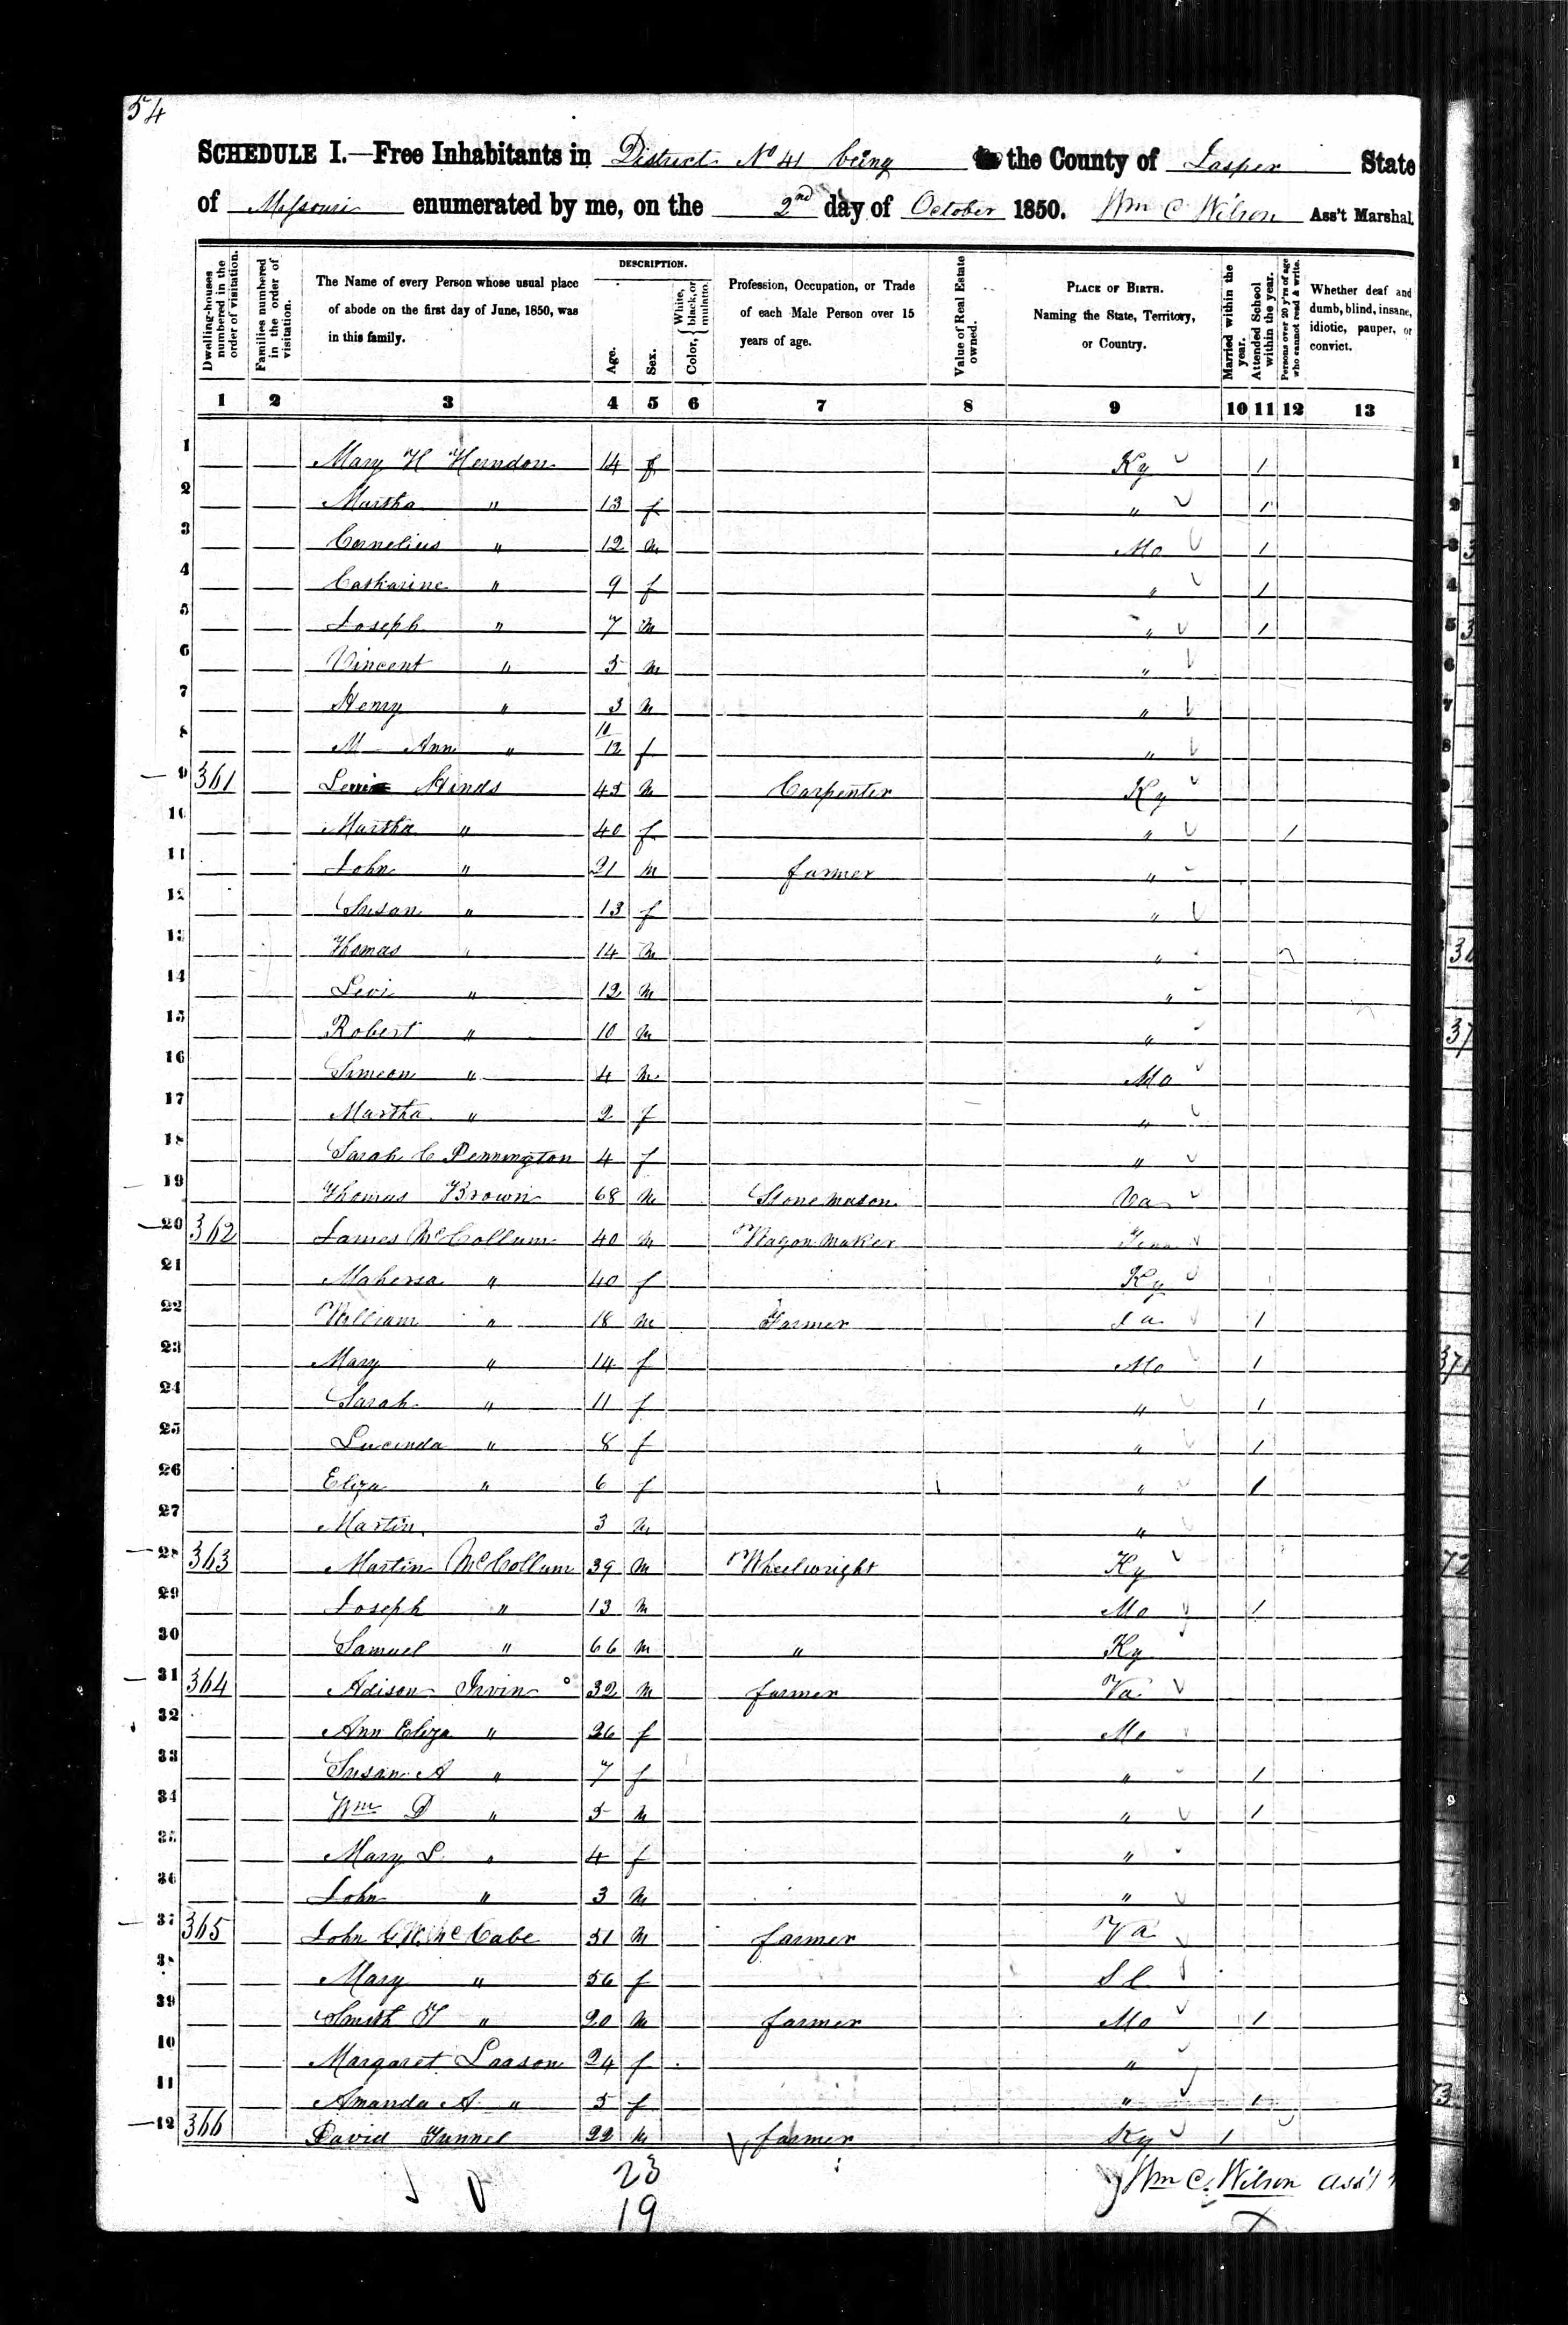 54
SCHEDULE I.—Free Inhabitants in District No 41 being the County of Jasper State
of Missouri enumerated by me, on the 2nd day of October 1850. Wm C Wilson Ass't Marshal.
Dwelling-houses numbered in the order of visitation.
Families numbered in the order of visitation.
The Name of every Person whose usual place of abode on the first day of June, 1850, was in this family.
DESCRIPTION.
Age.
Sex.
Color, { White, black, or mulatto.
Profession, Occupation, or Trade of each Male Person over 15 years of age.
Value of Real Estate owned.
PLACE OF BIRTH. Naming the State, Territory, or Country.
Married within the year.
Attended School within the year.
Persons over 20 y'rs of age who cannot read & write.
Whether deaf and dumb, blind, insane, idiotic, pauper, or convict.
1 2 3 4 5 6 7 8 9 10 11 12 13
1 Mary H Herndon 14 f Ky 1
2 Martha " 13 f " 1
3 Cornelius " 12 m Mo 1
4 Catharine " 9 f " 1
5 Joseph " 7 m " 1
6 Vincent " 5 m "
7 Henry " 3 m "
8 M Ann " 10/12 f "
9 361 Levi Hinds 45 m Carpenter Ky
10 Martha " 40 f " 1
11 John " 21 m farmer "
12 Susan " 13 f "
13 Thomas " 14 m "
14 Levi " 12 m "
15 Robert " 10 m "
16 Simeon " 4 m Mo
17 Martha " 2 f "
18 Sarah C Pennington 4 f "
19 Thomas Brown 68 m Stone mason Va
20 362 James McCollum 40 m Wagon maker Tenn
21 Mahersa " 40 f Ky
22 William " 18 m Farmer Ia 1
23 Mary " 14 f Mo 1
24 Sarah " 11 f " 1
25 Lucinda " 8 f " 1
26 Eliza " 6 f " 1
27 Martin 3 m "
28 363 Martin McCollum 39 m Wheelwright Ky
29 Joseph " 13 m Mo 1
30 Samuel " 66 m " Ky
31 364 Adison Irvin 32 m farmer Va
32 Ann Eliza " 26 f Mo
33 Susan A " 7 f " 1
34 Wm D " 5 m " 1
35 Mary L " 4 f "
36 John " 3 m "
37 365 John C W McCabe 51 m farmer Va
38 Mary " 56 f S C
39 Smith T " 20 m farmer Mo 1
40 Margaret Lasson 24 f "
41 Amanda A " 5 f " 1
42 366 David Tunnel 22 m farmer Ky 1
23
19
Wm C. Wilson ass't